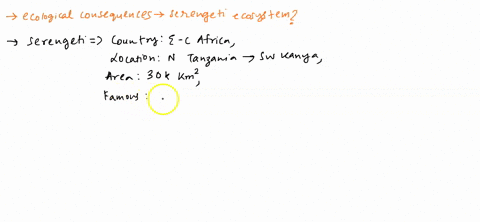 → ecological consequences → serengeti ecosystem?
→ serengeti => Country: E-C Africa,
Location: N Tanzania → SW Kanya,
Area: 30k Km²,
Famous: